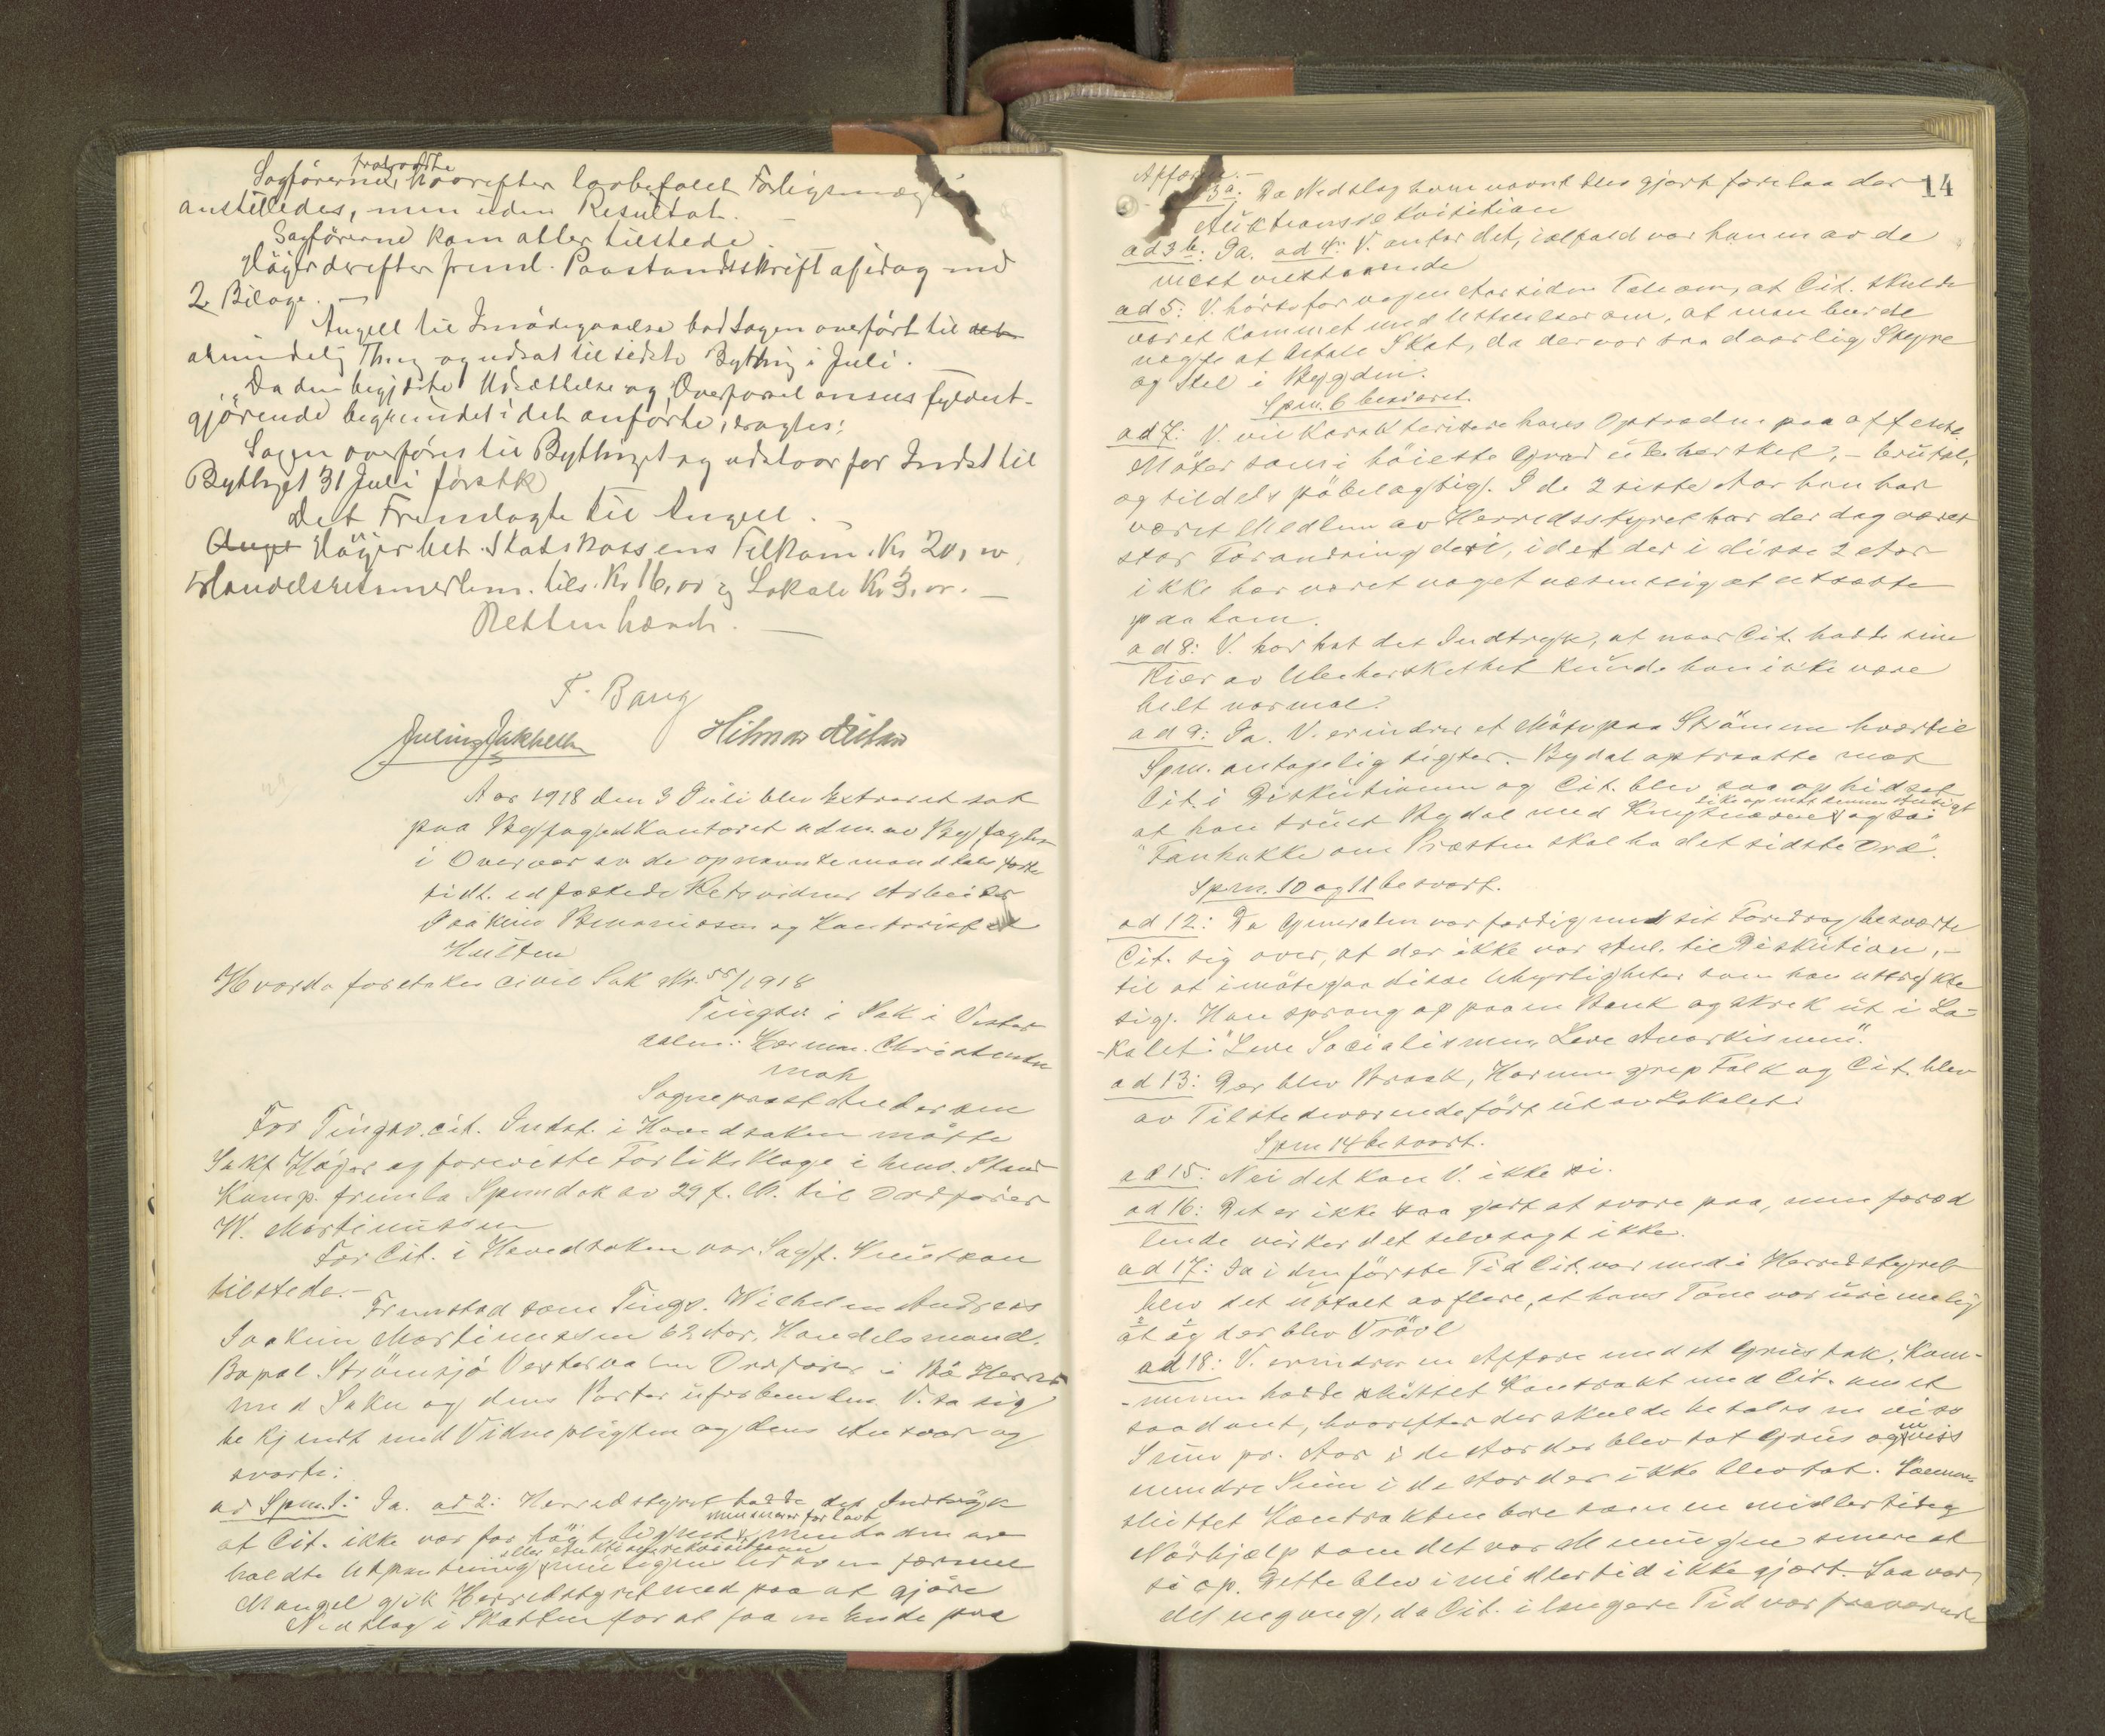 Sagførerne fratraadte
hvorefter lovbefalet Forligsmægling
anstilledes, men uden Resultat. —
Sagførerne kom atter tilstede
Höyer derefter freml. Paastandsskrift af idag med
2 Bilage. —
Angell til Imødegaaelse bad Sagen overført til det
almindelig Thing og udsat til sidste Bything i Juli. —
Da den begjærte Udsættelse og Overførsel ansees fyldest-
gjørende begrundet i det anførte, eragtes:
Sagen overføres til Bythinget og udstaar for Indst til
Bythinget 31 Juli førstk
Det Fremlagte til Angell. —
Anget Höyer bet. Statskassens Tilkom. Kr 20,00
Handelsretsmedlem. tils. Kr 16,00 og Lokale Kr 3,00. —
Retten hævet. —
F. Bang
Julius Jakhelln Hilmar
Aar 1918 den 3 Juli blev Extraret sat
paa Byfogedkontoret adm. av Byfogden
i Overvær av de opnævnte men
edfæstede Retsvidner Arbeider
Joakim Benoniosen og Kontorist
Hulten
Hvorda foretokes civil Sak Nr. 55/1918
Tingsv. i Sak i Vester
aalen: Herm. Christensen
mot
Sogneprest Andersen
For Tingsv. cit. Indst. i Hovedsaken møtte
Sakf Höyer og foreviste Forliksklage i henv. Stand
Komp. fremla Spmdok av 29 f. M. til Ordfører
W. Martinussen
For Cit. i Hovedsaken var Sagf. Knutzon
tilstede. —
Fremstod som Tingsv. Wilhelm Andreas
Joakim Martinussen 62 Aar, Handelsmand.
Bopæl Strömsjö Vesteraalen Ordfører i Bö Herred
med Saken og dens Parter uforbunden. V. sa sig
bekjendt med Vidnepligten og dens Ansvar og
svarte:
ad Spm. 1: Ja. ad 2: Herredstyret hadde det Indtryk
at Cit. ikke var for høgt lignet, men snarer for lavt men da den av
holdte Utpantning eller Auktionsrekvisitionen led av en formel
Mangel gik Herredstyret med paa at gjøre
Nedslag i Skatten for at faa en Ende paa
14
Affæren. —
ad 3a: Da Nedslag som nævnt blev gjort forelaa der
Auktionsrekvisition
ad 3b: Ja. ad 4: V. antar det, ialfald var han en av de
mest velstaaende
ad 5: V. hørte for nogen Aar siden Tale om, at Cit. skulde
været kommet med Uttalelser om, at man burde
negte at betale Skat, da der var saa daarlig Styre
og Stel i Bygden.
Spm. 6 besvaret.
ad 7: V. vil karakterisere hans Optræden paa offentl.
Møter som i høieste Grad ubehersket, — brutal,
og tildels pøbelagtig. I de 2 siste Aar han har
været Medlem av Herredsstyret har der dog været
stor Forandring deri, idet der i disse 2 Aar
ikke har været noget væsentlig at utsætte
paa ham.
ad 8: V. har hat det Indtryk, at naar Cit. hadde sine
Rier av Ubeherskethet kunde han ikke være
helt normal.
ad 9: Ja. V. erindrer et Møte paa Strömme hvortil
Spm. antagelig sigter. Bydal optraatte mot
Cit. i Diskutionen og Cit. blev saa ophidset
at han truet Bydal med Knytnæven like op mot dennes Ansigt og sa:
"Fanhakke om Præsten skal ha det sidste Ord".
Spm. 10 og 11 besvart.
ad 12: Da Generalen var færdig med sit Foredrag besværte
Cit. sig over, at der ikke var Anl. til Diskution, —
til at imøtegaa disse Uhyrligheter som han uttrykte
sig. Han sprang op paa en Bænk og skrek ut i Lo-
-kalet: "Leve Socialismen, Leve Anarkismen".
ad 13: Der blev Braak, Harmen grep Folk og Cit. blev
av Tilstedeværende ført ut av Lokalet.
Spm 14 besvart.
ad 15: Nei det kan V. ikke si.
ad 16: Det er ikke saa godt at svare paa, men foræd
lende virker det selvsagt ikke.
ad 17: Ja i den første Tid Cit. var med i Herredstyret
blev det uttalt av flere, at hans Tone var urimelig
at og der blev Vrövl
ad 18: V. erindrer en Affære med et Grustak. Kom-
-munen hadde sluttet Kontrakt med Cit. om et
saadant, hvorefter der skulde betales en viss
Sum pr. Aar i de Aar der blev tat Grus og en viss
mindre Sum i de Aar der ikke blev tat.
sluttet Kontrakten bare som en midlertidig
Nörhjælp som det var Meningen senere at
si op. Dette blev imidlertid ikke gjort. Saa var
det engang, da Cit. i længere Tid var fraværende